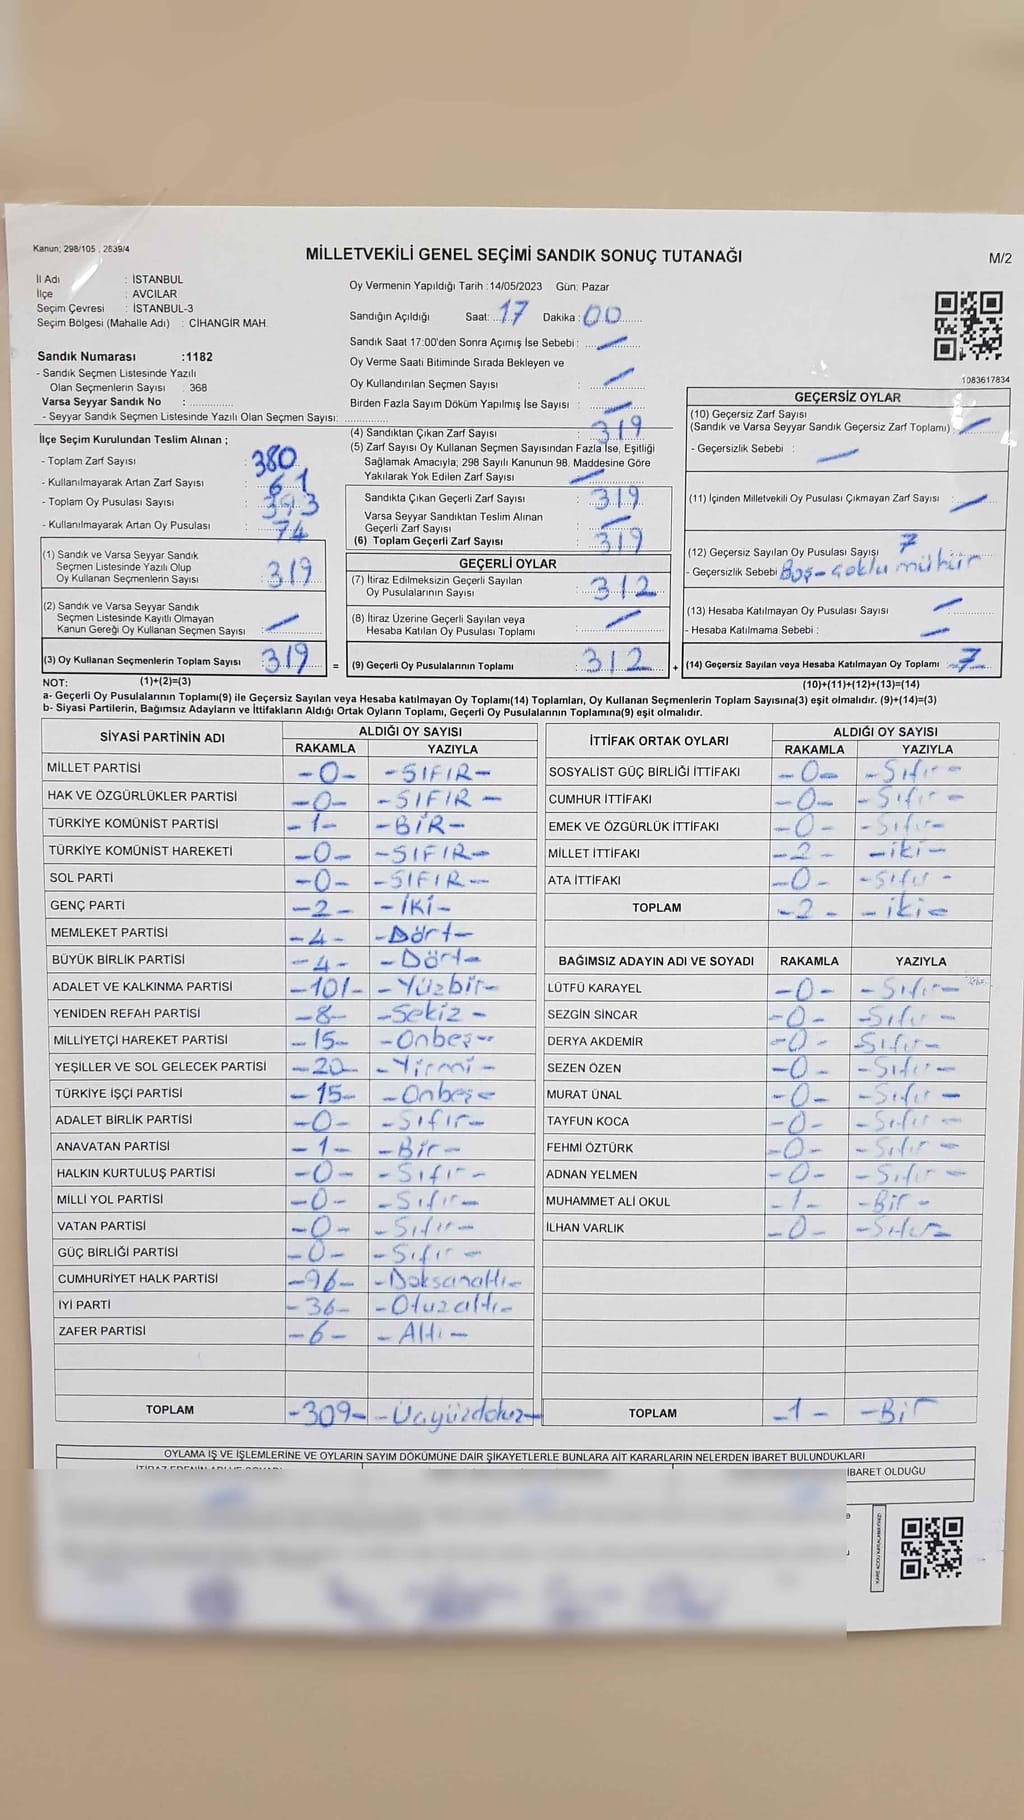 Kanun; 298/105 , 2839/4
MİLLETVEKİLİ GENEL SEÇİMİ SANDIK SONUÇ TUTANAĞI
M/2
İl Adı : İSTANBUL
İlçe : AVCILAR
Seçim Çevresi : İSTANBUL-3
Seçim Bölgesi (Mahalle Adı) : CİHANGİR MAH.
Sandık Numarası :1182
- Sandık Seçmen Listesinde Yazılı
Olan Seçmenlerin Sayısı : 368
Varsa Seyyar Sandık No :
- Seyyar Sandık Seçmen Listesinde Yazılı Olan Seçmen Sayısı:
İlçe Seçim Kurulundan Teslim Alınan ;
- Toplam Zarf Sayısı : 380
- Kullanılmayarak Artan Zarf Sayısı : 61
- Toplam Oy Pusulası Sayısı : 393
- Kullanılmayarak Artan Oy Pusulası : 74
(1) Sandık ve Varsa Seyyar Sandık
Seçmen Listesinde Yazılı Olup
Oy Kullanan Seçmenlerin Sayısı : 319
(2) Sandık ve Varsa Seyyar Sandık
Seçmen Listesinde Kayıtlı Olmayan
Kanun Gereği Oy Kullanan Seçmen Sayısı : —
(3) Oy Kullanan Seçmenlerin Toplam Sayısı : 319
Oy Vermenin Yapıldığı Tarih : 14/05/2023 Gün: Pazar
Sandığın Açıldığı Saat: 17 Dakika : 00
Sandık Saat 17:00'den Sonra Açımış İse Sebebi : —
Oy Verme Saati Bitiminde Sırada Bekleyen ve
Oy Kullandırılan Seçmen Sayısı : —
Birden Fazla Sayım Döküm Yapılmış İse Sayısı : —
(4) Sandıktan Çıkan Zarf Sayısı : 319
(5) Zarf Sayısı Oy Kullanan Seçmen Sayısından Fazla İse, Eşitliği
Sağlamak Amacıyla; 298 Sayılı Kanunun 98. Maddesine Göre
Yakılarak Yok Edilen Zarf Sayısı : —
Sandıkta Çıkan Geçerli Zarf Sayısı : 319
Varsa Seyyar Sandıktan Teslim Alınan
Geçerli Zarf Sayısı : —
(6) Toplam Geçerli Zarf Sayısı : 319
GEÇERLİ OYLAR
(7) İtiraz Edilmeksizin Geçerli Sayılan
Oy Pusulalarının Sayısı : 312
(8) İtiraz Üzerine Geçerli Sayılan veya
Hesaba Katılan Oy Pusulası Toplamı : —
= (9) Geçerli Oy Pusulalarının Toplamı : 312
1083617834
GEÇERSİZ OYLAR
(10) Geçersiz Zarf Sayısı
(Sandık ve Varsa Seyyar Sandık Geçersiz Zarf Toplamı) : —
- Geçersizlik Sebebi : —
(11) İçinden Milletvekili Oy Pusulası Çıkmayan Zarf Sayısı : —
(12) Geçersiz Sayılan Oy Pusulası Sayısı 7
- Geçersizlik Sebebi Boş-çoklu mühür
(13) Hesaba Katılmayan Oy Pusulası Sayısı —
- Hesaba Katılmama Sebebi : —
+ (14) Geçersiz Sayılan veya Hesaba Katılmayan Oy Toplamı 7
NOT: (1)+(2)=(3) (10)+(11)+(12)+(13)=(14)
a- Geçerli Oy Pusulalarının Toplamı(9) ile Geçersiz Sayılan veya Hesaba katılmayan Oy Toplamı(14) Toplamları, Oy Kullanan Seçmenlerin Toplam Sayısına(3) eşit olmalıdır. (9)+(14)=(3)
b- Siyasi Partilerin, Bağımsız Adayların ve İttifakların Aldığı Ortak Oyların Toplamı, Geçerli Oy Pusulalarının Toplamına(9) eşit olmalıdır.
SİYASİ PARTİNİN ADI ALDIĞI OY SAYISI
RAKAMLA YAZIYLA
MİLLET PARTİSİ -0- -SIFIR-
HAK VE ÖZGÜRLÜKLER PARTİSİ -0- -SIFIR-
TÜRKİYE KOMÜNİST PARTİSİ -1- -BİR-
TÜRKİYE KOMÜNİST HAREKETİ -0- -SIFIR-
SOL PARTİ -0- -SIFIR-
GENÇ PARTİ -2- -İKİ-
MEMLEKET PARTİSİ -4- -Dört-
BÜYÜK BİRLİK PARTİSİ -4- -Dört-
ADALET VE KALKINMA PARTİSİ -101- -Yüzbir-
YENİDEN REFAH PARTİSİ -8- -Sekiz-
MİLLİYETÇİ HAREKET PARTİSİ -15- -Onbeş-
YEŞİLLER VE SOL GELECEK PARTİSİ -20- -Yirmi-
TÜRKİYE İŞÇİ PARTİSİ -15- -Onbeş-
ADALET BİRLİK PARTİSİ -0- -Sıfır-
ANAVATAN PARTİSİ -1- -Bir-
HALKIN KURTULUŞ PARTİSİ -0- -Sıfır-
MİLLİ YOL PARTİSİ -0- -Sıfır-
VATAN PARTİSİ -0- -Sıfır-
GÜÇ BİRLİĞİ PARTİSİ -0- -Sıfır-
CUMHURİYET HALK PARTİSİ -96- -Doksanaltı-
İYİ PARTİ -36- -Otuzaltı-
ZAFER PARTİSİ -6- -Altı-
TOPLAM -309- -Üçyüzdokuz-
İTTİFAK ORTAK OYLARI ALDIĞI OY SAYISI
RAKAMLA YAZIYLA
SOSYALİST GÜÇ BİRLİĞİ İTTİFAKI -0- -Sıfır-
CUMHUR İTTİFAKI -0- -Sıfır-
EMEK VE ÖZGÜRLÜK İTTİFAKI -0- -Sıfır-
MİLLET İTTİFAKI -2- -iki-
ATA İTTİFAKI -0- -Sıfır-
TOPLAM -2- -iki-
BAĞIMSIZ ADAYIN ADI VE SOYADI RAKAMLA YAZIYLA
LÜTFÜ KARAYEL -0- -Sıfır-
SEZGİN SİNCAR -0- -Sıfır-
DERYA AKDEMİR -0- -Sıfır-
SEZEN ÖZEN -0- -Sıfır-
MURAT ÜNAL -0- -Sıfır-
TAYFUN KOCA -0- -Sıfır-
FEHMİ ÖZTÜRK -0- -Sıfır-
ADNAN YELMEN -0- -Sıfır-
MUHAMMET ALİ OKUL -1- -Bir-
İLHAN VARLIK -0- -Sıfır-
TOPLAM -1- -Bir
OYLAMA İŞ VE İŞLEMLERİNE VE OYLARIN SAYIM DÖKÜMÜNE DAİR ŞİKAYETLERLE BUNLARA AİT KARARLARIN NELERDEN İBARET BULUNDUKLARI
İBARET OLDUĞU